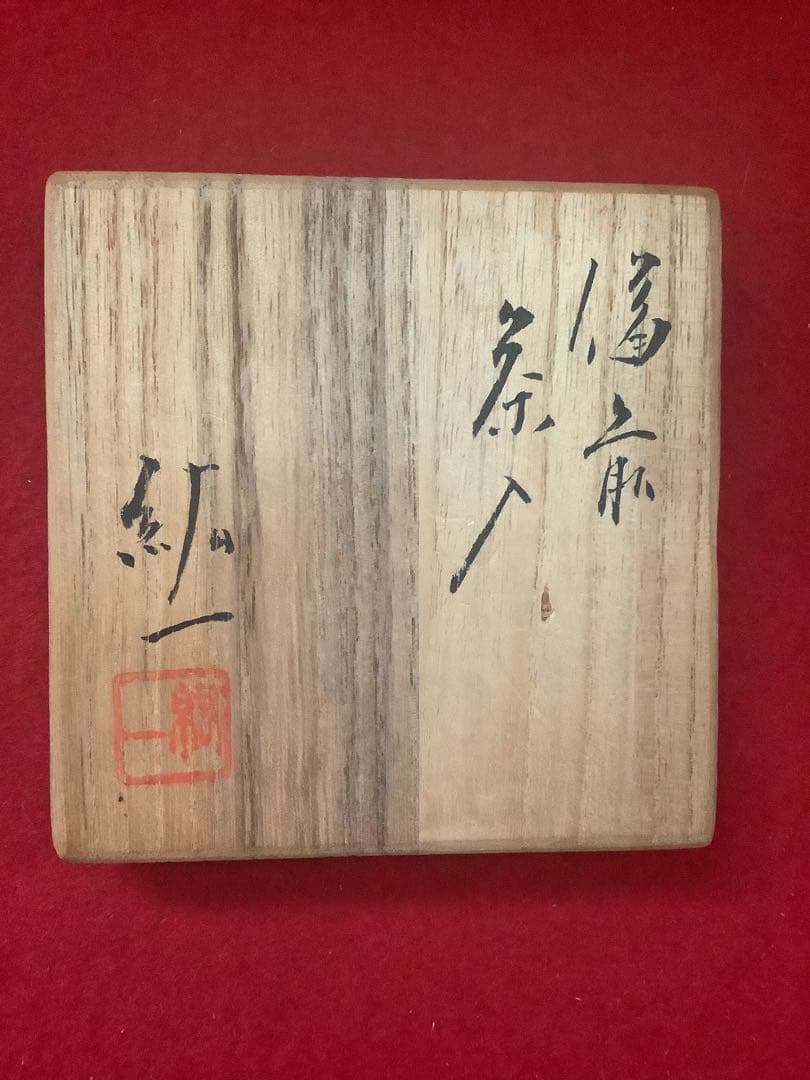 備前
茶入
紘一
紘一